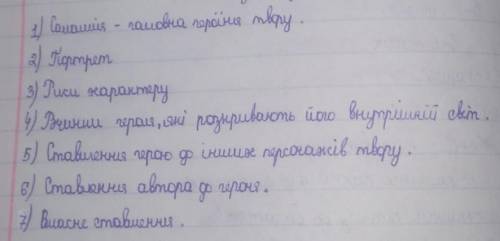 1) Соломія - головна героїня твору.
2) Портрет
3) Риси характеру
4) Вчинки героя, які розкривають його внутрішній світ.
5) Ставлення герою до інших персонажів твору.
6) Ставлення автора до героя.
7) Власне ставлення.